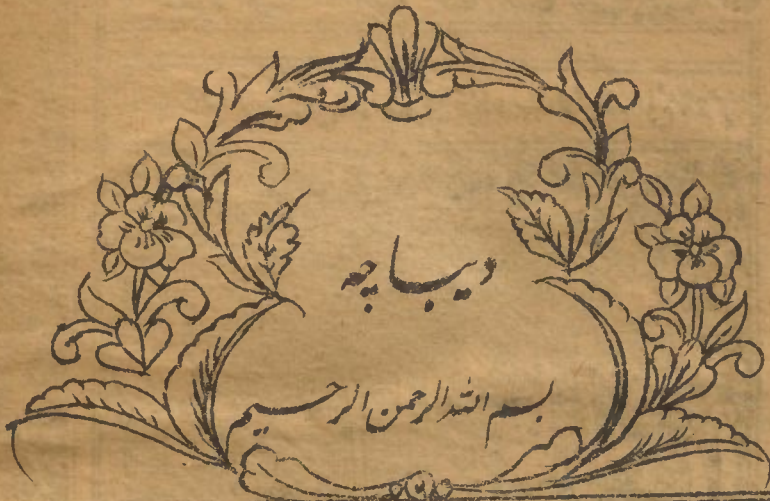 دیباچہ
بسم اللہ الرحمن الرحیم